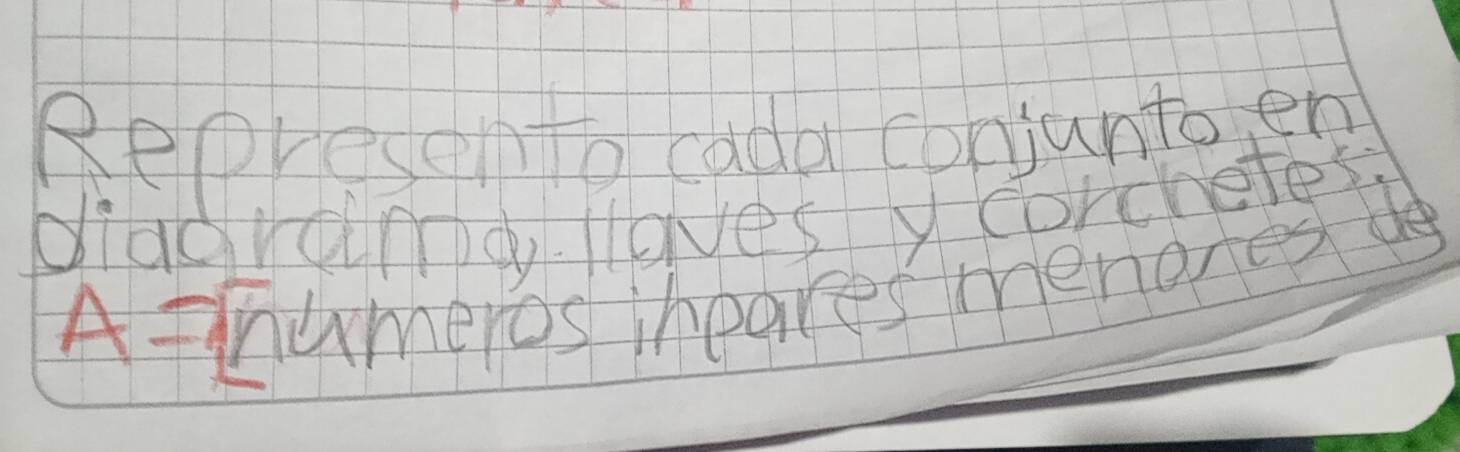 Represento cada conjunto en
diagrama, llaves y corchetes.
A=[numeros inpares menores de